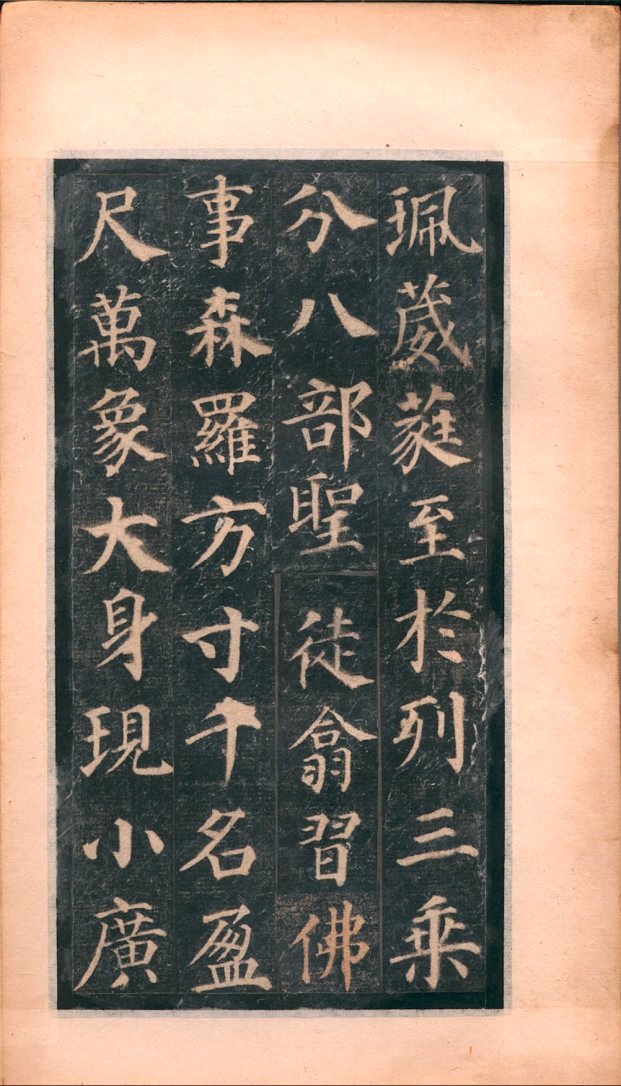 珮葳蕤至於列三乘
分八部聖徒翕習佛
事森羅方寸千名盈
尺萬象大身現小廣